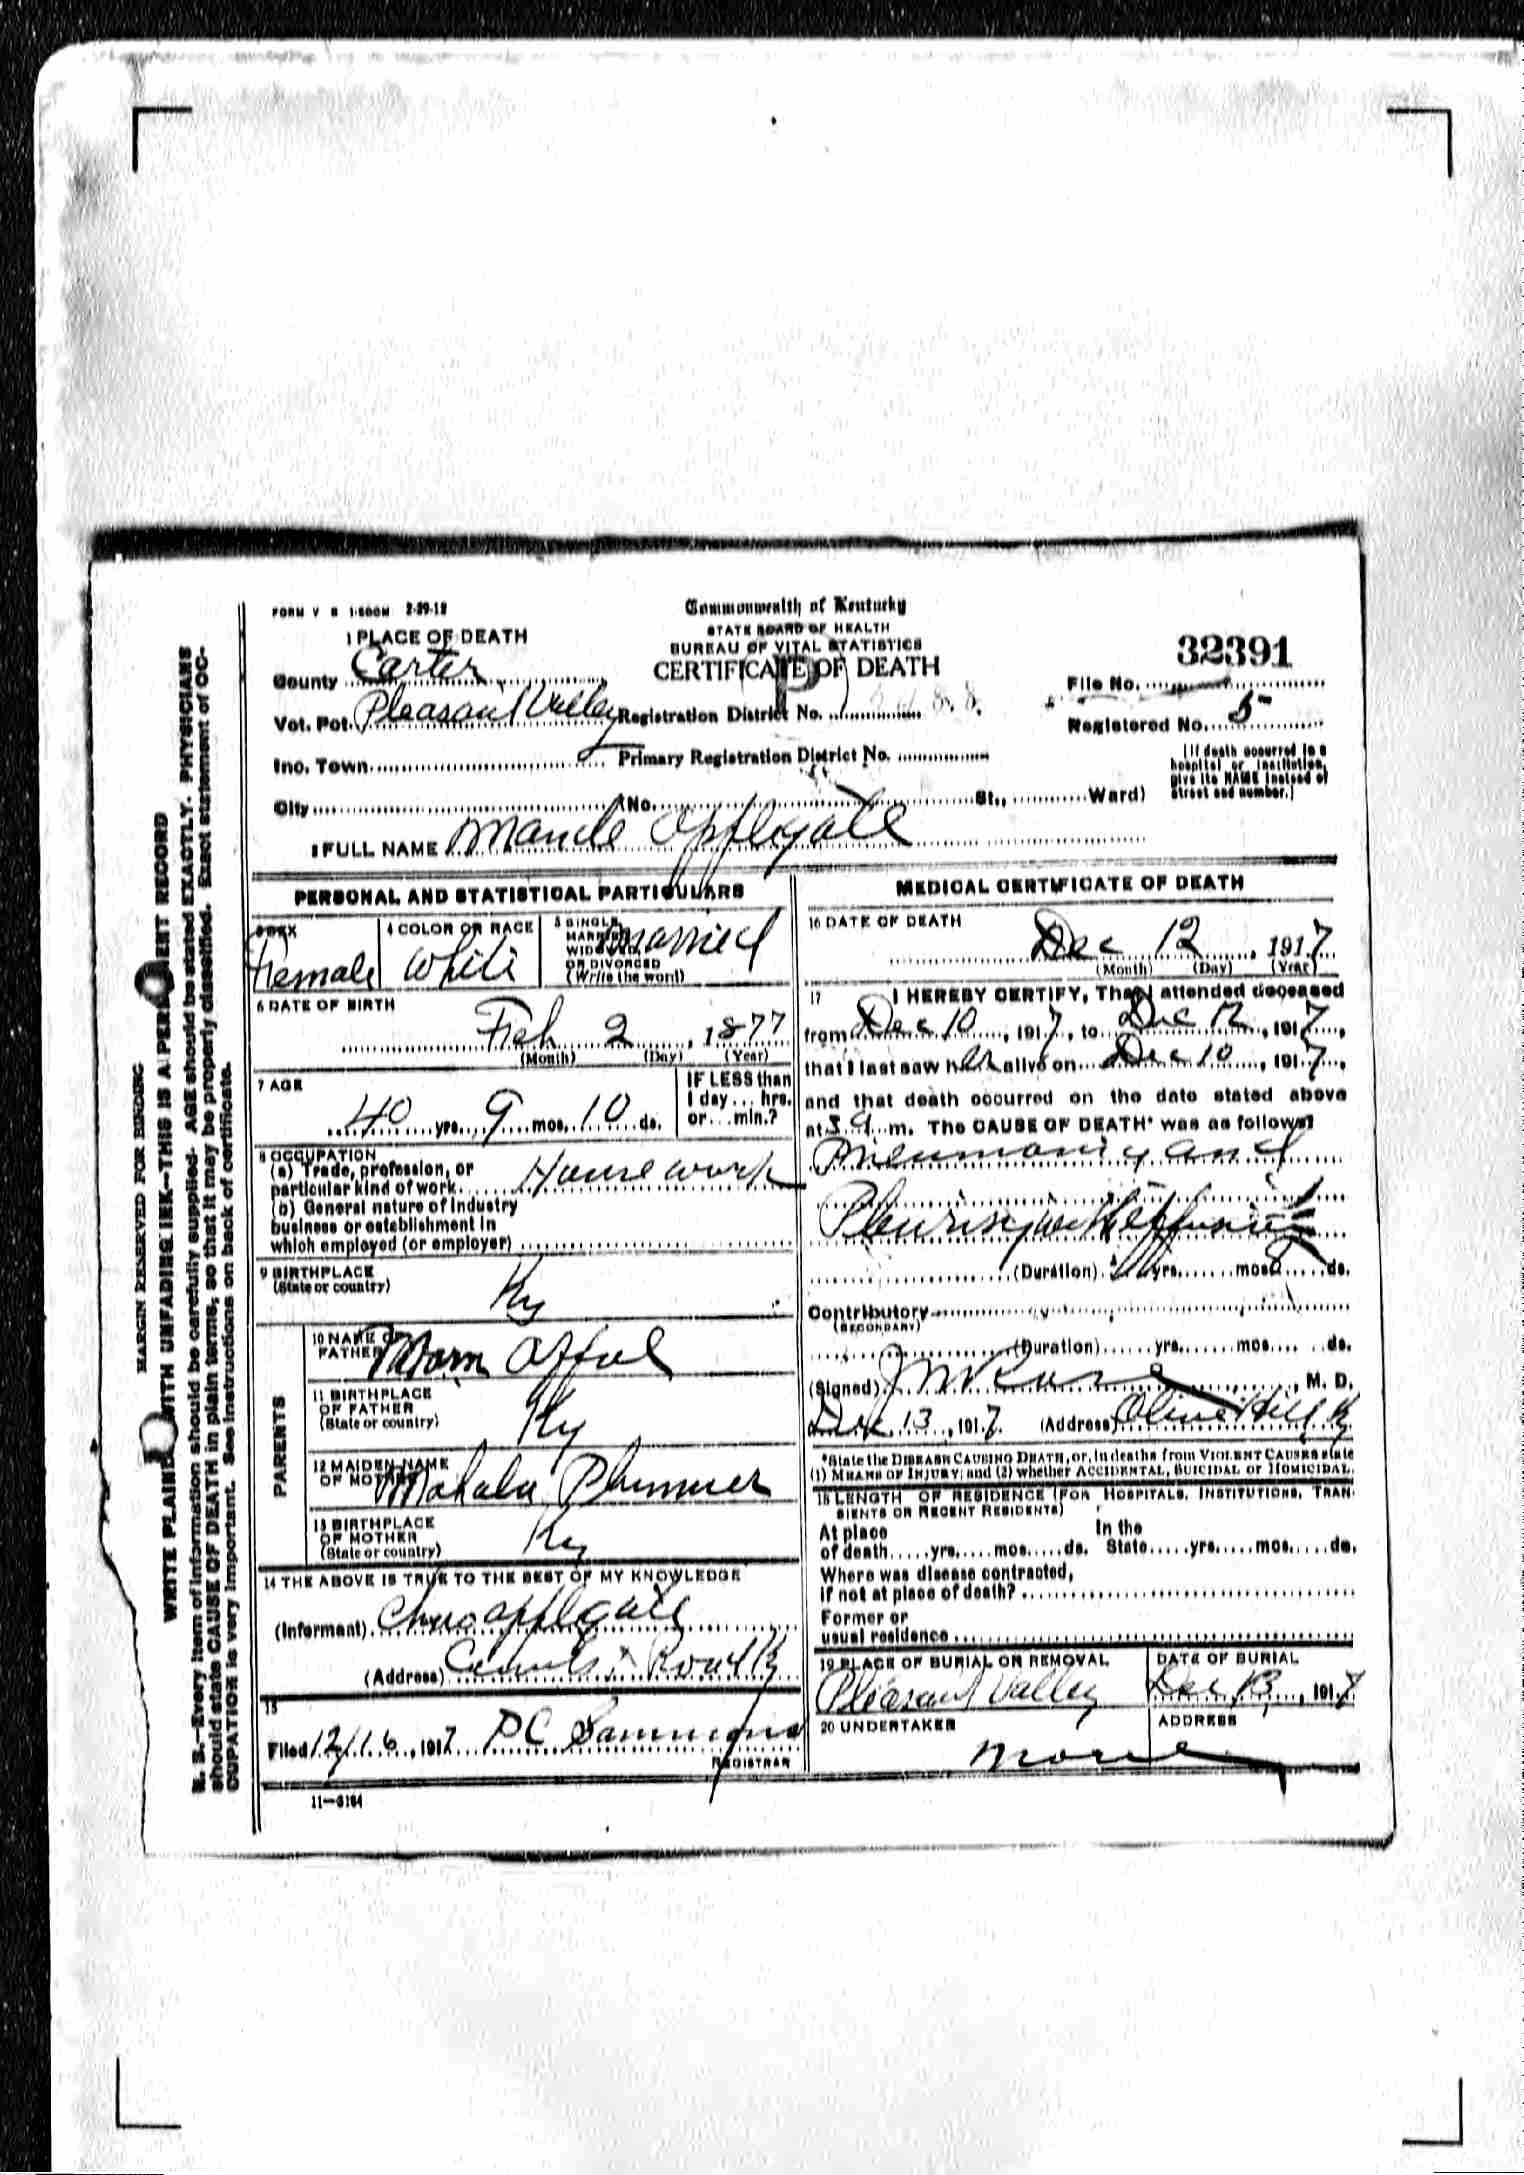 FORM V S 1-500M 2-29-12
Commonwealth of Kentucky
STATE BOARD OF HEALTH
BUREAU OF VITAL STATISTICS
CERTIFICATE OF DEATH
32391
File No.
Registered No. 5
(If death occurred in a
hospital or institution,
give its NAME instead of
street and number.)
1 PLACE OF DEATH
County Carter
Vot. Pct. Pleasant Valley Registration District No.
Inc. Town Primary Registration District No.
City (No. St., Ward)
2 FULL NAME Maude Applegate
PERSONAL AND STATISTICAL PARTICULARS
3 SEX
Female
4 COLOR OR RACE
White
5 SINGLE,
MARRIED,
WIDOWED,
OR DIVORCED
(Write the word)
Married
6 DATE OF BIRTH
Feb 2, 1877
(Month) (Day) (Year)
7 AGE
40 yrs. 9 mos. 10 ds.
IF LESS than
1 day... hrs.
or... min.?
8 OCCUPATION
(a) Trade, profession, or
particular kind of work House work
(b) General nature of Industry
business or establishment in
which employed (or employer)
9 BIRTHPLACE
(State or country)
Ky
PARENTS
10 NAME OF
FATHER
11 BIRTHPLACE
OF FATHER
(State or country)
Ky
12 MAIDEN NAME
OF MOTHER Mahala Plummer
13 BIRTHPLACE
OF MOTHER
(State or country)
Ky
14 THE ABOVE IS TRUE TO THE BEST OF MY KNOWLEDGE
(Informant) Applegate
(Address)
15
Filed 12/16, 1917 P C Sammons
REGISTRAR
11—3184
MEDICAL CERTIFICATE OF DEATH
16 DATE OF DEATH
Dec 12, 1917
(Month) (Day) (Year)
17 I HEREBY CERTIFY, That I attended deceased
from Dec 10, 1917, to Dec 12, 1917,
that I last saw her alive on Dec 10, 1917,
and that death occurred on the date stated above
at 3 a m. The CAUSE OF DEATH* was as follows:
Pneumonia and
Pleurisy with effusion
(Duration) yrs. mos. 8 ds.
Contributory
(SECONDARY)
(Duration) yrs. mos. ds.
(Signed) J M Rose, M. D.
Dec 13, 1917 (Address) Olive Hill Ky
*State the DISEASE CAUSING DEATH, or, in deaths from VIOLENT CAUSES state
(1) MEANS OF INJURY; and (2) whether ACCIDENTAL, SUICIDAL or HOMICIDAL.
18 LENGTH OF RESIDENCE (FOR HOSPITALS, INSTITUTIONS, TRAN-
SIENTS OR RECENT RESIDENTS)
At place In the
of death yrs. mos. ds. State yrs. mos. ds.
Where was disease contracted,
if not at place of death?
Former or
usual residence
19 PLACE OF BURIAL OR REMOVAL
Pleasant Valley
DATE OF BURIAL
Dec 13, 1917
20 UNDERTAKER
ADDRESS
None
MARGIN RESERVED FOR BINDING
WRITE PLAINLY WITH UNFADING INK—THIS IS A PERMANENT RECORD
N. B.—Every item of information should be carefully supplied. AGE should be stated EXACTLY. PHYSICIANS
should state CAUSE OF DEATH in plain terms, so that it may be properly classified. Exact statement of OC-
CUPATION is very important. See instructions on back of certificate.